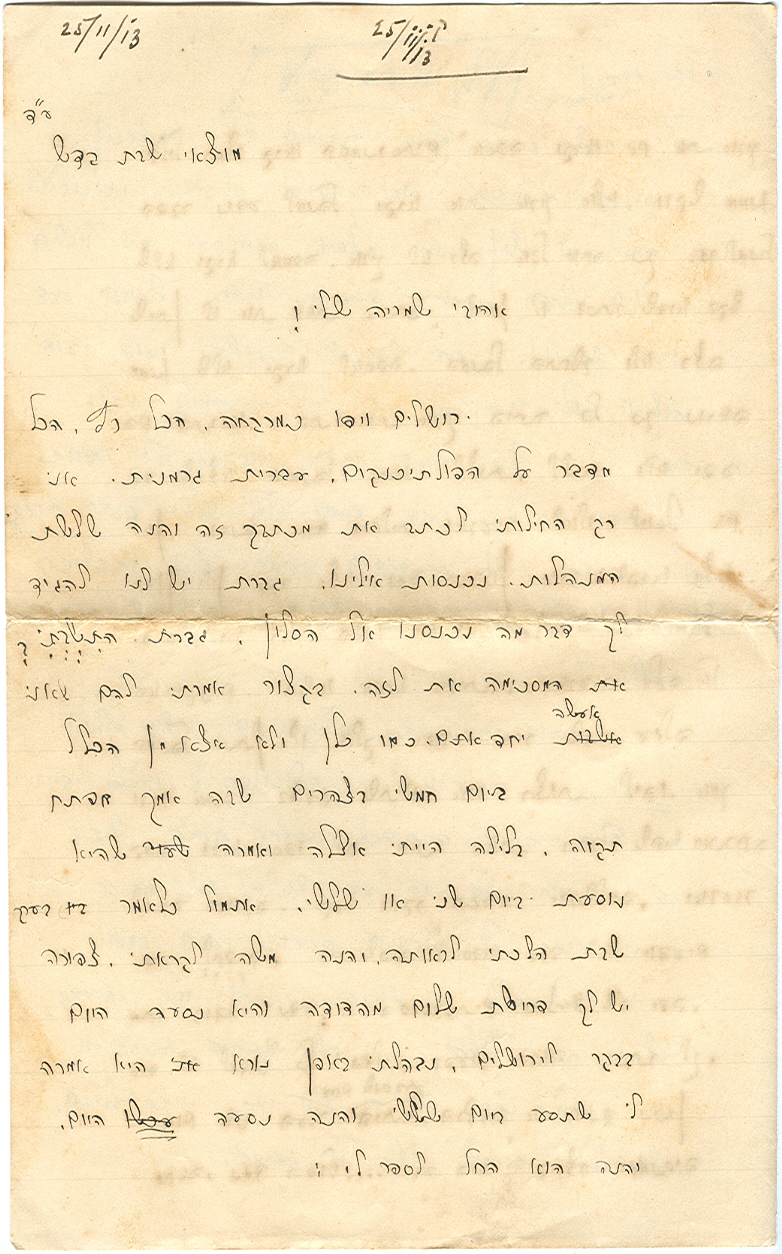 25/11/13
25/11/13
ע"ה
מוצאי שבת קדש
אהובי שמריה שלי!
ירושלים ויפו כמרקחה, הכל רץ, הכל
מדבר על הפוליטיכניקום, עברית גרמנית. אני
רק החילותי לכתב את מכתבך זה והנה שלשת
המנהלות נכנסות אילינו. גברת יש לנו להגיד
לך דבר מה נכנסנו אל הסלון, גברת
את המסכימה את לזה. בקצור אמרתי להם שאני
אעשה
יחד אתם כמו כלן ולא אצא מן הכלל
ביום חמשי בצהרים שבה אמך מפתח
תקוה, בלילה הייתי אצלה ואמרה שהיא
נוסעת ביום שני או שלשי. אתמול כלאמר בערב
שבת הלכתי לראותה, והנה משה לקראתי, צפורה
יש לך דרישת שלום מהדודה והיא נסעה היום
בבקר לירושלים, נבהלתי באופן נורא היא אמרה
לי שתסע ביום שלשי והנה נסעה עכשו היום.
והנה הוא החל לספר לי: